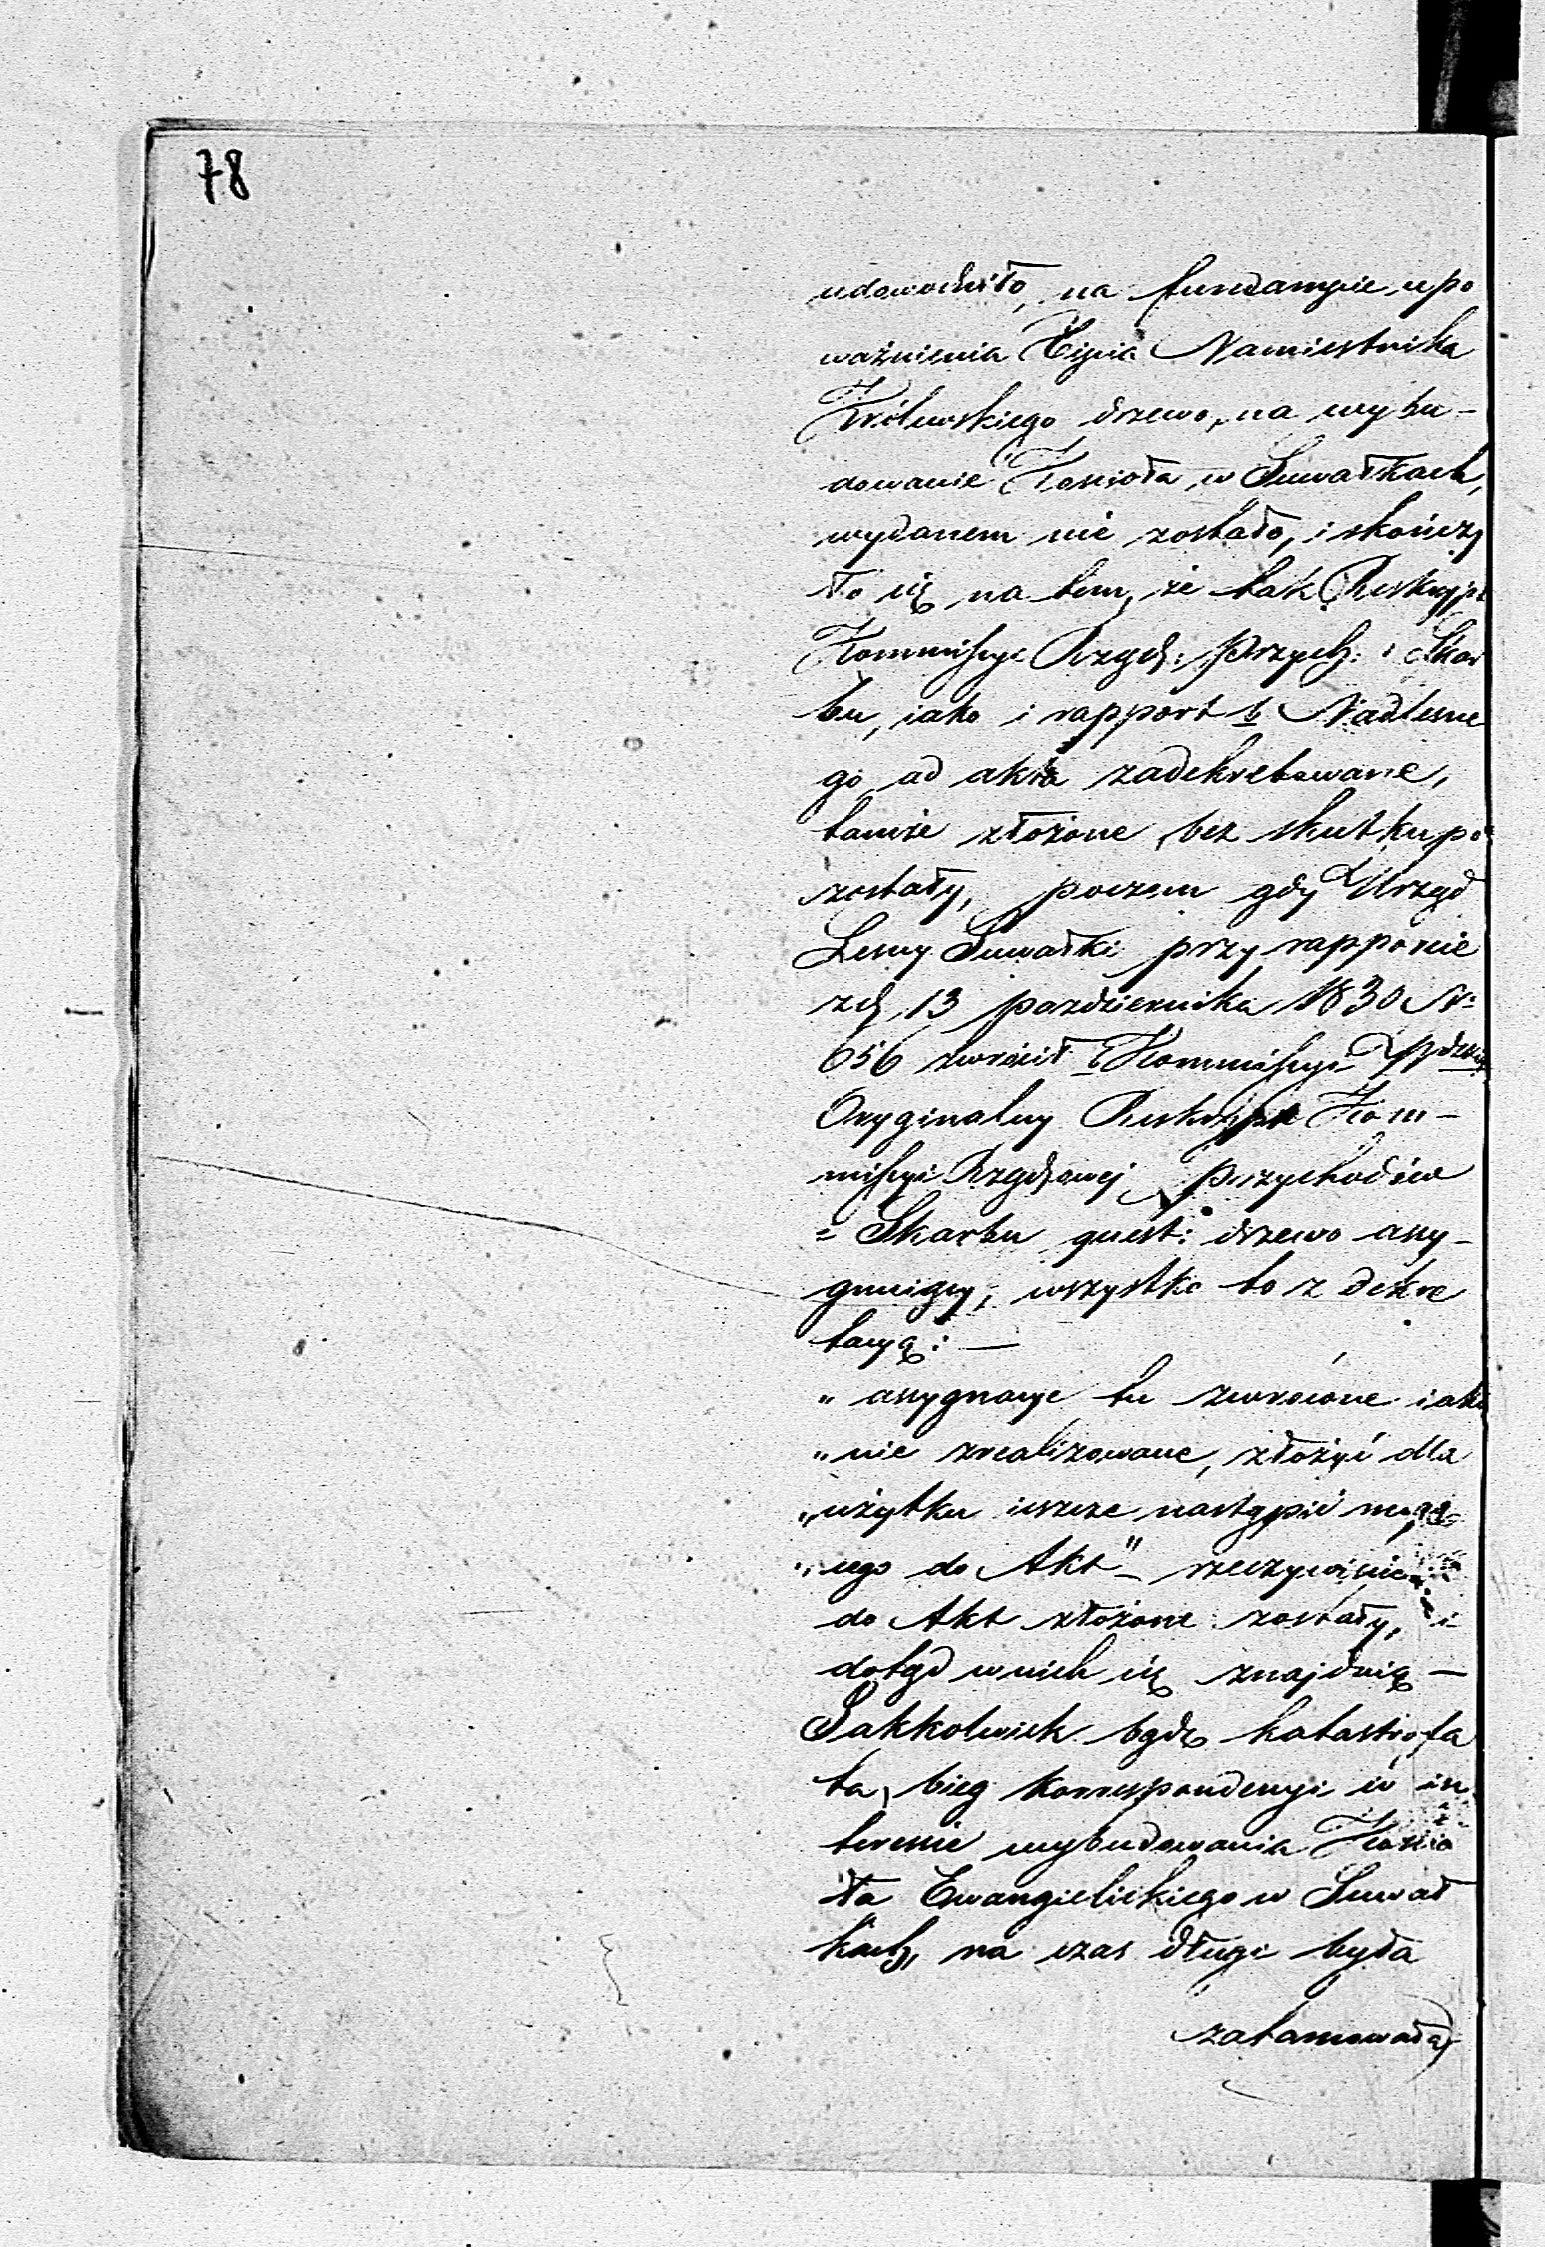 78
udowodniło, na fundamęcie upo
ważnienia Xięcia Namiestnika
Królewskiego drzewo, na wybu-
dowanie Kościoła w Suwałkach,
wydanem nie zostało, i skończy
ło się na tem, że tak Reskrypt
Kommissyi Rządz: Przych: i Skar
bu, iako i rapport b. Nadleśne
go ad akta zadekretowane,
tamże złożone bez skutku po
zostały, poczem gdy Urząd
Leśny Suwałki przy rapporcie
z d. 13 pazdziernika 1830 Nr
656 zwrócił b. Kommissyi
Oryginalny Reskrypt Kom-
missyi Rządzowej przychodów
i Skarbu quest: drzewo assy-
gnuiący, wszystko to z dekre
tacyą: —
" assygnacye tu zwrócone iako
" nie zrealizowane, złożyć dla
" użytku ieszcze nastąpić mogą
" cego do Akt" - rzeczywiście
do Akt złożone zostały, i
dotąd w nich się znajduią —
Jakkolwiek bądź katastrofa
ta, bieg korrespondencyi w in
teresie wybudowania Kościo
ła Ewangielickiego w Suwał
kach, na czas długi była
zatamowała,